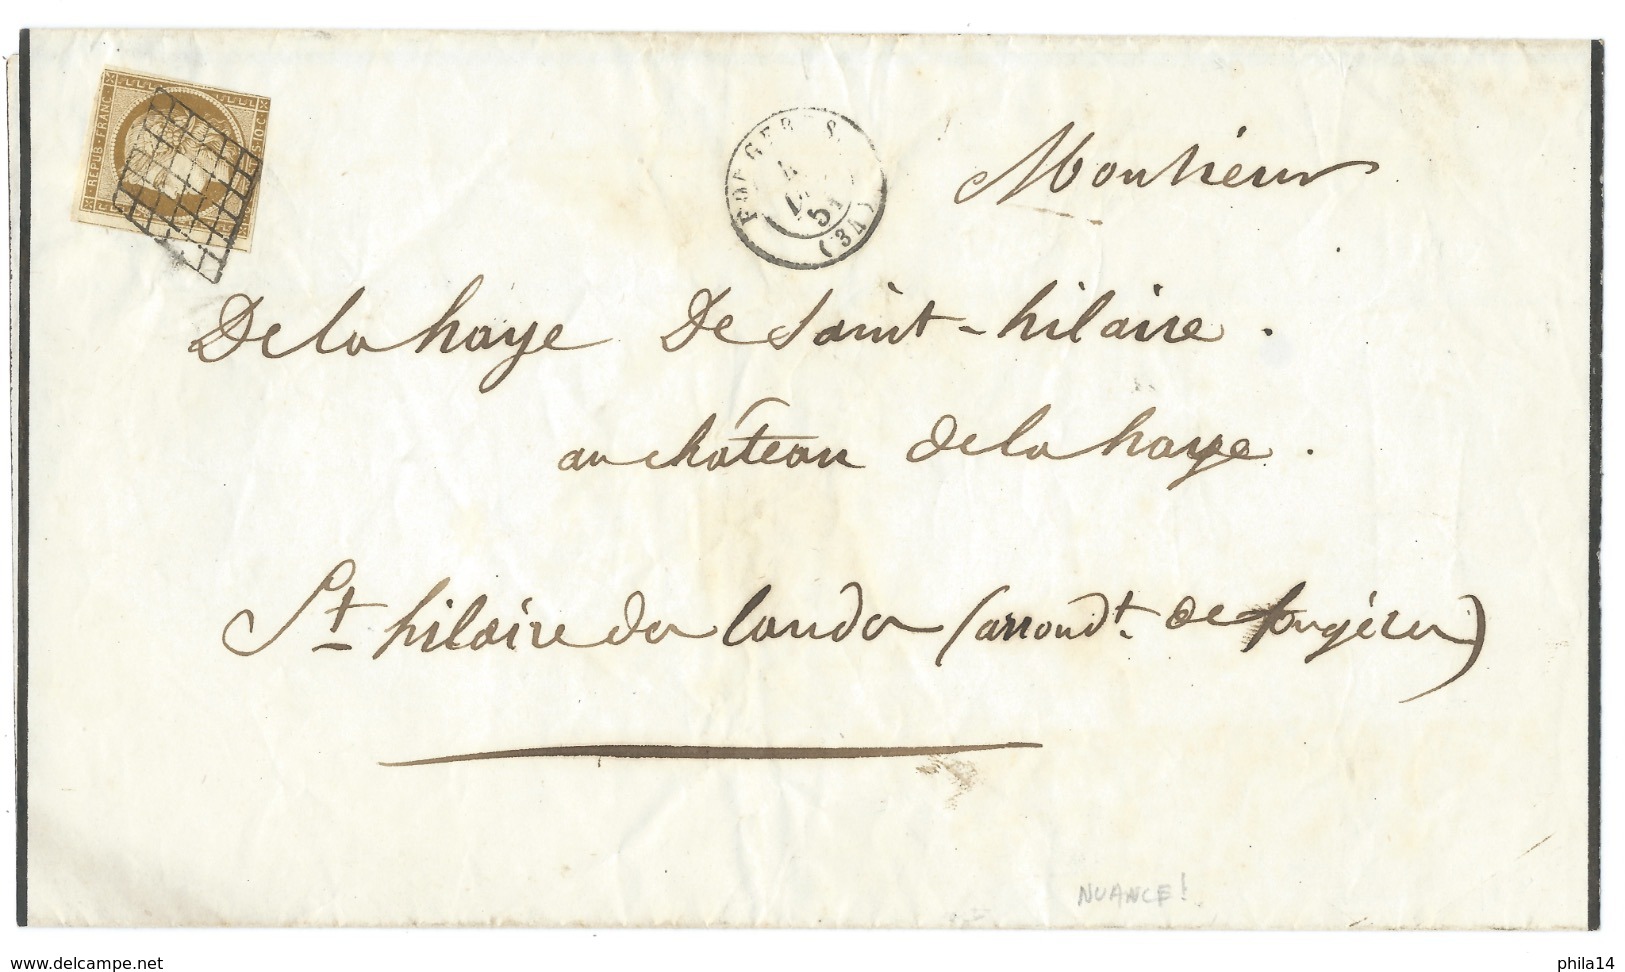 REPUB. FRANC.
10 C.
FOUGERES
4
51
(34)
Monsieur
De la haye De Saint-hilaire.
au château de la haye.
St hilaire des landes (arrondt. de fougères)
NUANCE!
www.delcampe.net
phila14